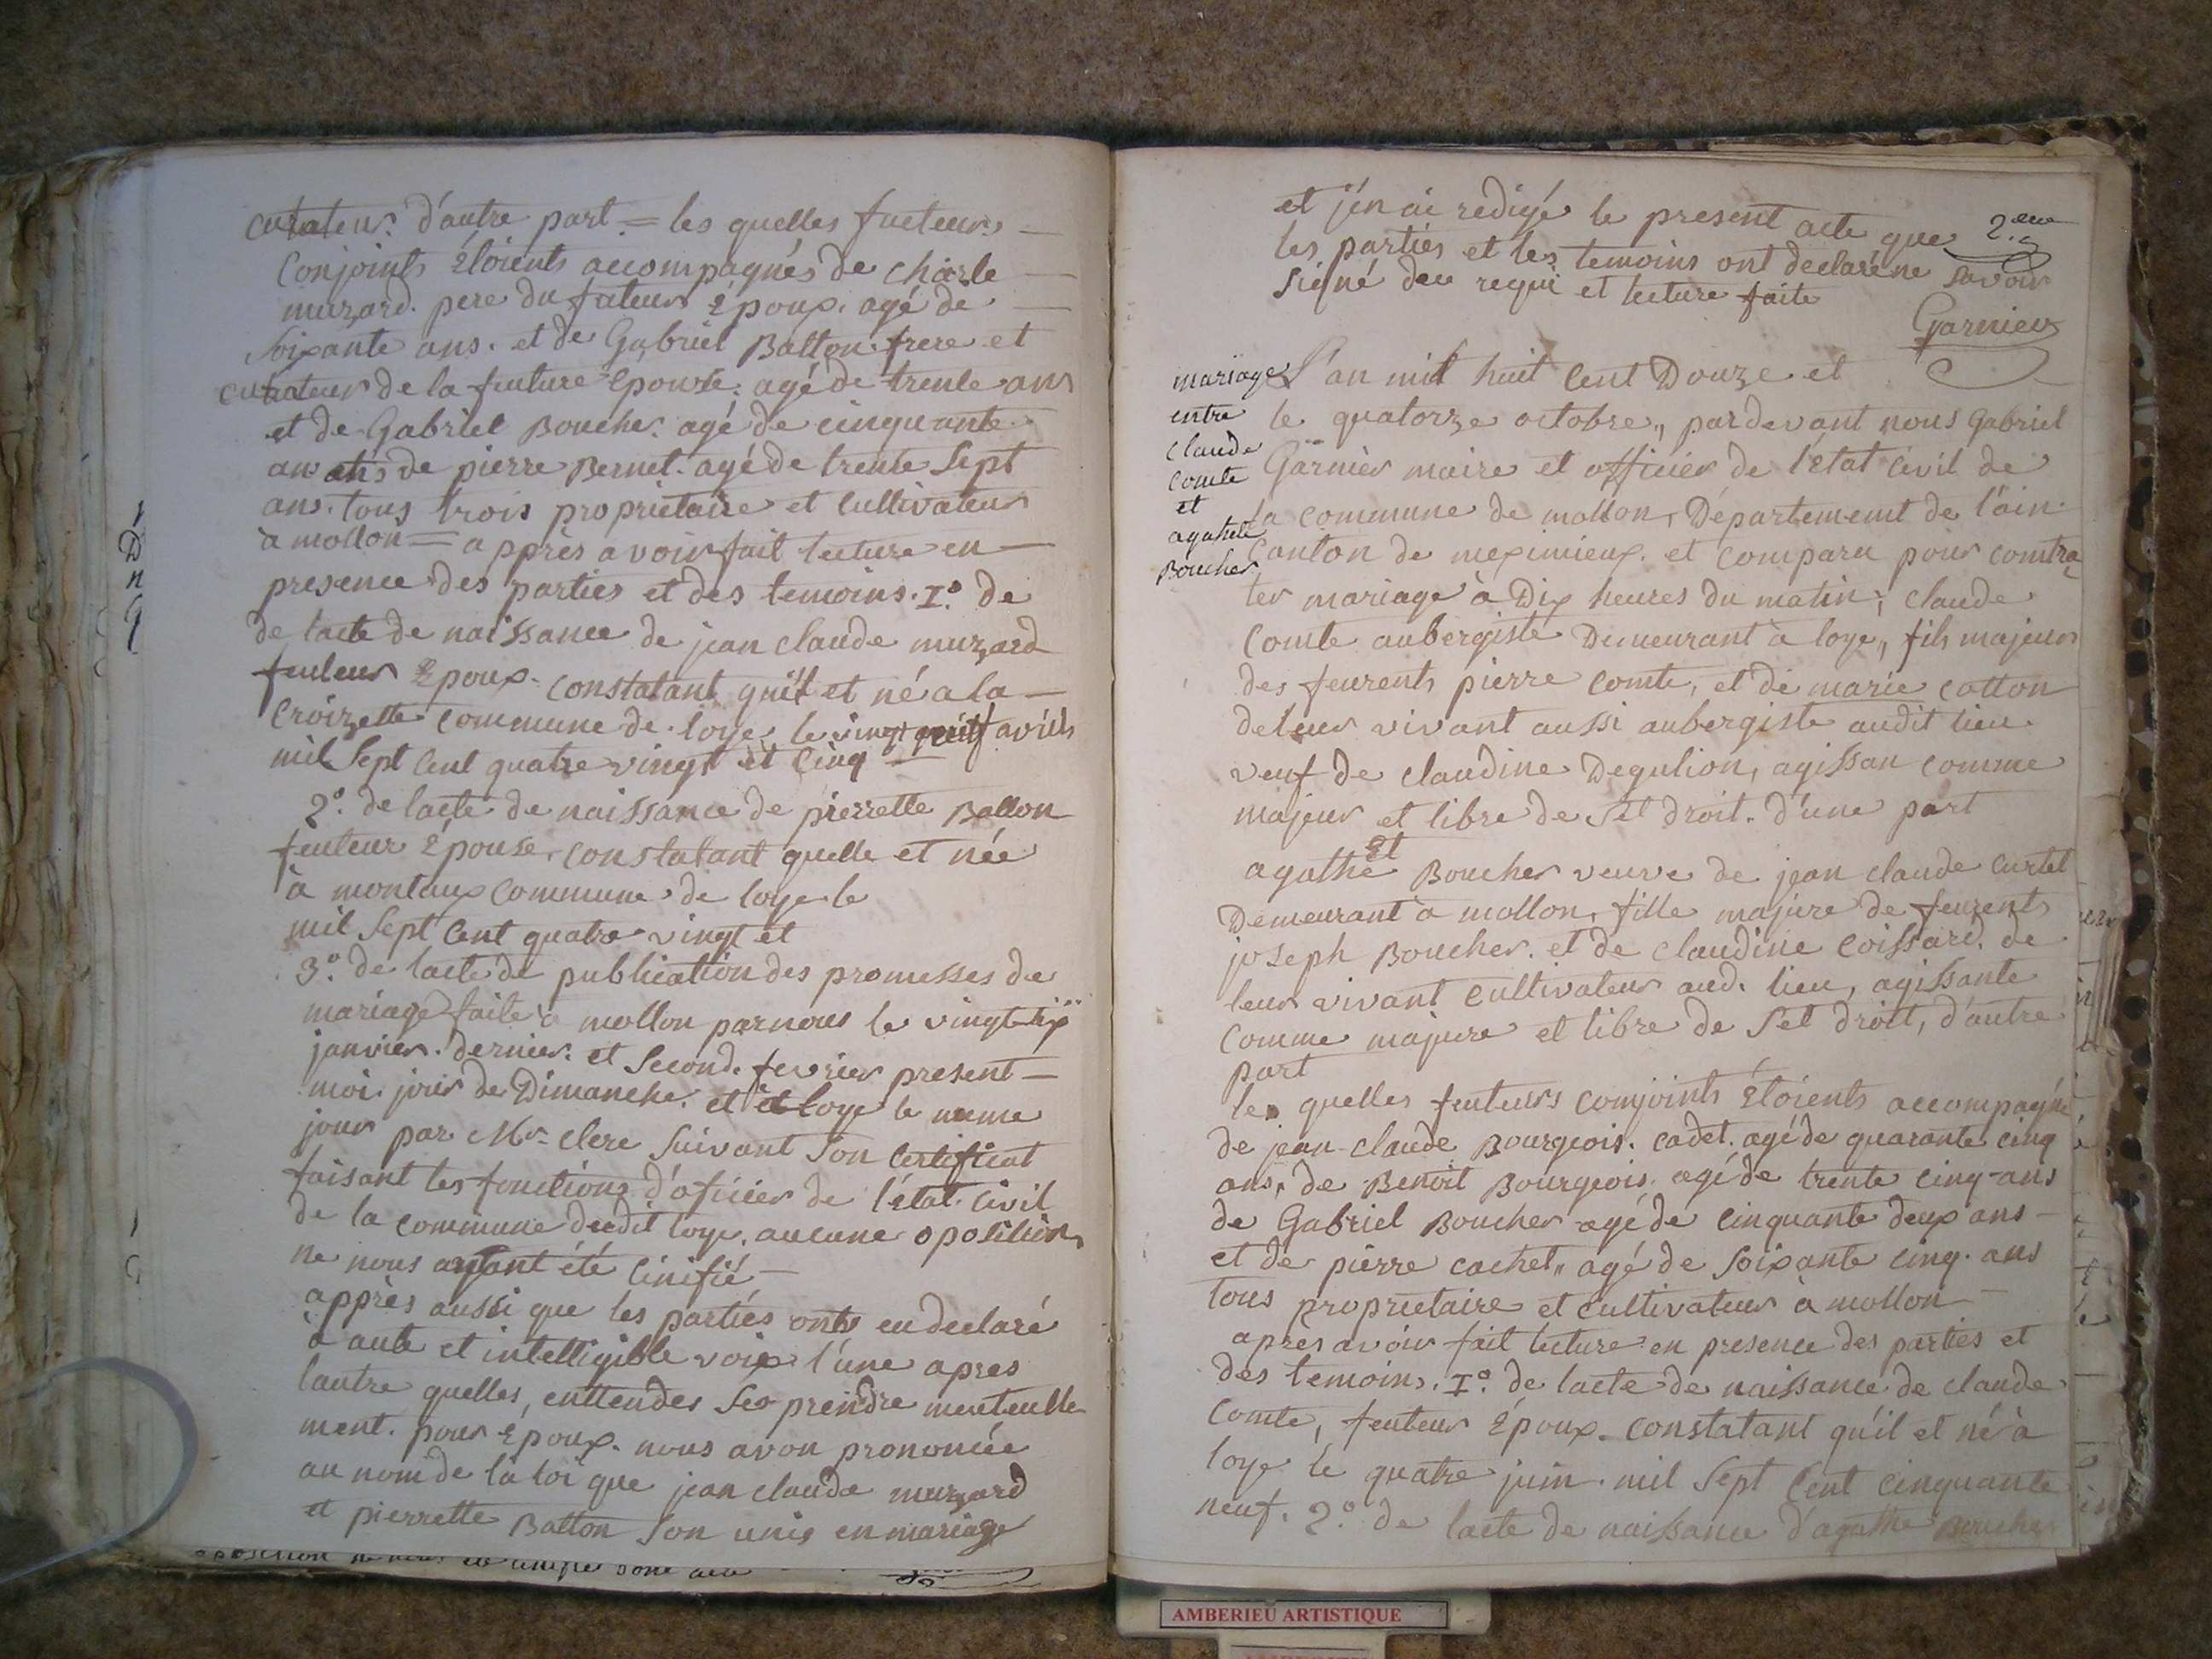 curateur. d'autre part = les quelles futeur —
Conjoints Étoients accompagnés de charle —
muzard. pere du futeur Époux. agé de —
Soixante ans. et de Gabriel Batton frere et
curateur de la feuture Epouse. agé de trente ans
et de Gabriel Boucher agé de cinquante
ans de pierre Bernet. agé de trente Sept
ans. tous trois proprietaire et Cultivateur
à mollon = apprès avoir fait lecture en —
presence des parties et des temoins. 1º. de
de lacte de naissance de jean claude muzard
feuteur Époux. constatant quil et né a la —
Croizette commune de loye, le vingt avril
mil Sept Cent quatre vingt et Cinq —
2º. de lacte de naissance de pierrette Batton
feuteur Épouse. constatant quelle et née
à montaux commune de loye le
mil Sept Cent quatre vingt et
3º. de lacte de publication des promesses de
mariage faite à mollon par nous le vingt six
janvier. dernier. et Second. fevrier present —
moi. jour de Dimanche. et à loye le meme
jour par Mr. clerc Suivant Son Certificat
faisant les fonctions d'oficier de l'état Civil
de la commune dudit loye. aucune oposition
ne nous ayant été Cinifié —
apprès aussi que les partiés ont eu declaré
à aute et intelligible voix l'une apres
lautre quelles, enttendes Se prendre meuteuelle
ment. pour Époux. nous avon prononcée
au nom de la loi que jean claude muzard
et pierrette Batton Son unis en mariage
AMBERIEU ARTISTIQUE
et j'en ai redigé le present acte que 2.eme
les parties et les temoins ont declaré ne Savoir
Signé deu requi et lecture faite
Garnier
mariage
entre
Claude
Comte
et
agathe
Boucher
L'an mil huit Cent Douze et
le quatorze octobre, pardevant nous Gabriel
Garnier maire et officier de l'état Civil de
la commune de mollon, Département de l'ain
Canton de meximieux. et comparu pour contra
ter mariage à Dix heures du matin; claude
Comte aubergiste Demeurant à loye, fils majeur
des feurents pierre Comte, et de marie cotton
deleur vivant aussi aubergiste audit lieu
veuf de claudine Degulion, agissan comme
majeur et libre de Set droit. d'une part
Et
agathe Boucher veuve de jean claude Curtet
Demeurant à mollon, fille majure de feurents
joseph Boucher. et de claudine Coissard. de
leur vivant Cultivateur aud. lieu, agissante
Comme majure et libre de Set droit, d'autre
part
les quelles feuteurs conjoints Étoients accompagné
de jean-claude Bourgeois. cadet. agé de quarante cinq
ans, de Benoit Bourgeois. agé de trente cinq-ans
de Gabriel Boucher agé de Cinquante deux ans —
et de pierre cachet,, agé de Soixante cinq. ans
tous proprietaire et Cultivateur à mollon —
apres avoir fait lecture en presence des parties et
des temoins. 1º. de lacte de naissance de claude
Comte, feuteur Époux. constatant qu'il et né à
loye le quatre juin. mil Sept Cent Cinquante
neuf. 2º. de lacte de naissance d'agathe Boucher